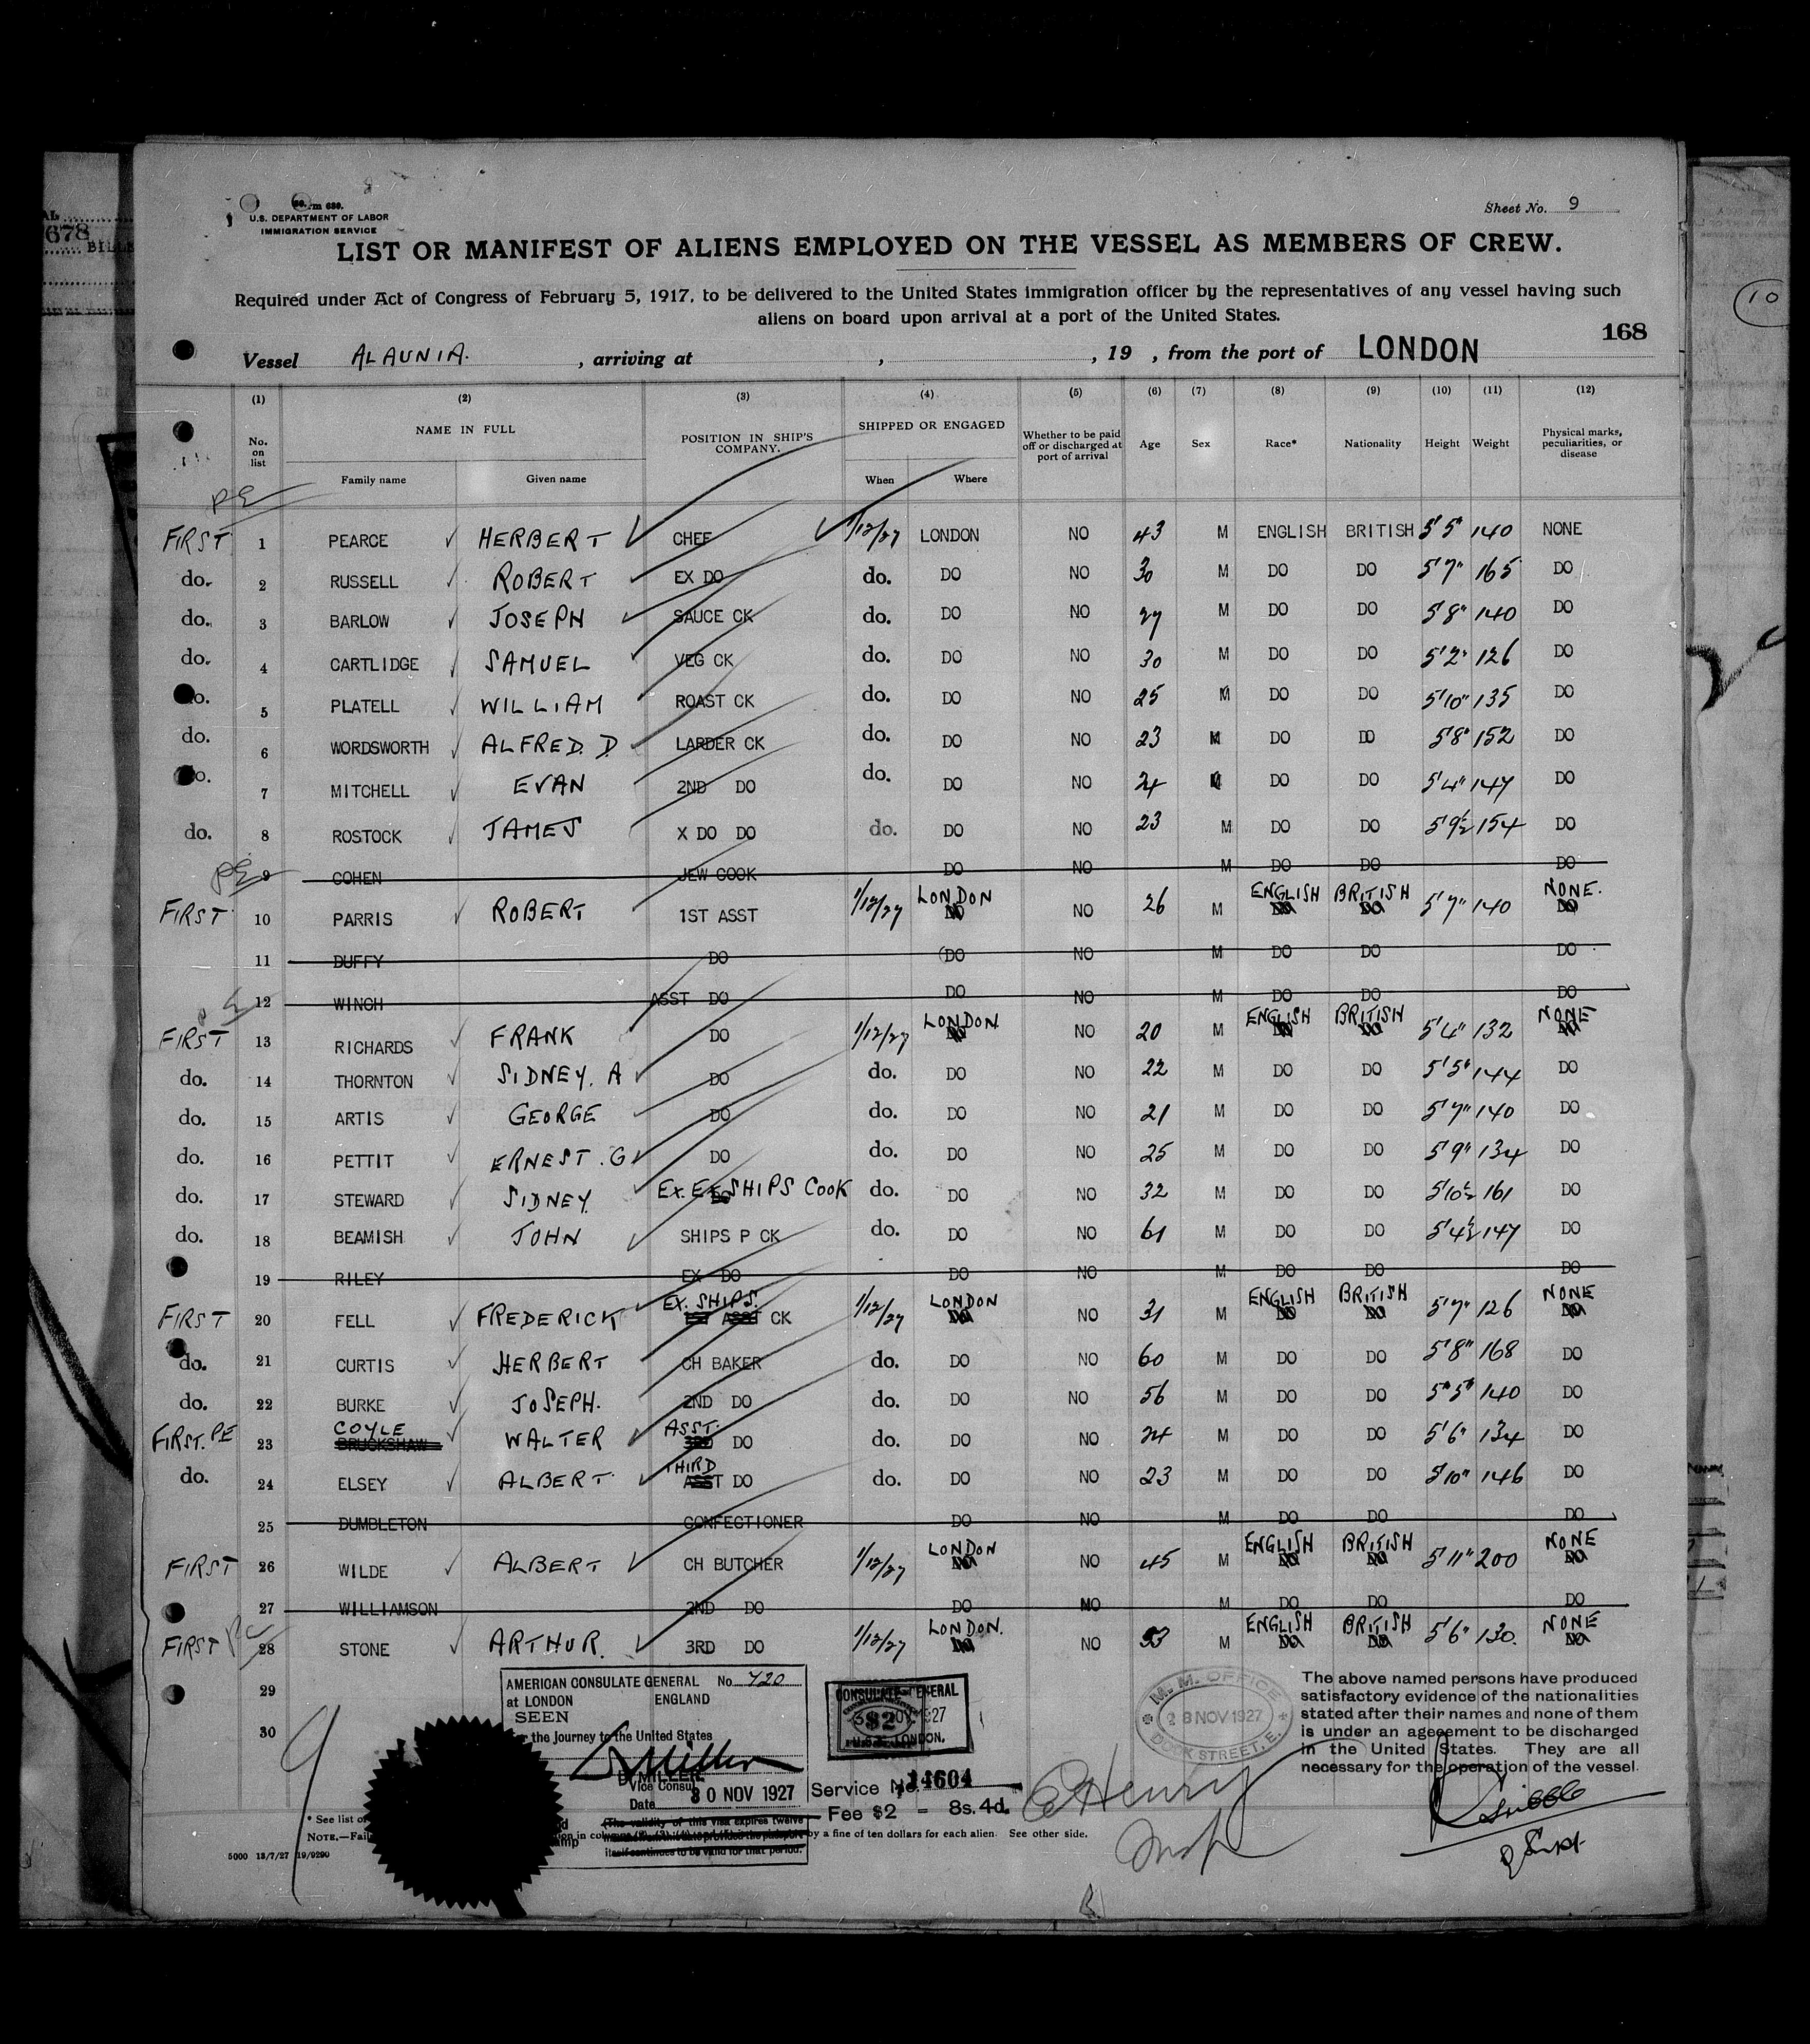 678
BILL
10
Form 680.
U.S. DEPARTMENT OF LABOR
IMMIGRATION SERVICE
Sheet No. 9
LIST OR MANIFEST OF ALIENS EMPLOYED ON THE VESSEL AS MEMBERS OF CREW.
Required under Act of Congress of February 5, 1917, to be delivered to the United States immigration officer by the representatives of any vessel having such
aliens on board upon arrival at a port of the United States.
168
Vessel ALAUNIA. , arriving at , , 19 , from the port of LONDON
(1) (2) (3) (4) (5) (6) (7) (8) (9) (10) (11) (12)
No. on list NAME IN FULL POSITION IN SHIP'S COMPANY. SHIPPED OR ENGAGED Whether to be paid off or discharged at port of arrival Age Sex Race* Nationality Height Weight Physical marks, peculiarities, or disease
Family name Given name When Where
PE
FIRST 1 PEARCE HERBERT CHEF 1/12/27 LONDON NO 43 M ENGLISH BRITISH 5'5" 140 NONE
do. 2 RUSSELL ROBERT EX DO do. DO NO 30 M DO DO 5'7" 165 DO
do. 3 BARLOW JOSEPH SAUCE CK do. DO NO 27 M DO DO 5'8" 140 DO
do. 4 CARTLIDGE SAMUEL VEG CK do. DO NO 30 M DO DO 5'2" 126 DO
do. 5 PLATELL WILLIAM ROAST CK do. DO NO 25 M DO DO 5'10" 135 DO
do. 6 WORDSWORTH ALFRED. D. LARDER CK do. DO NO 23 M DO DO 5'8" 152 DO
do. 7 MITCHELL EVAN 2ND DO do. DO NO 24 M DO DO 5'4" 147 DO
do. 8 ROSTOCK JAMES X DO DO do. DO NO 23 M DO DO 5'9½ 154 DO
PE 9 COHEN JEW COOK DO NO M DO DO DO
FIRST 10 PARRIS ROBERT 1ST ASST 1/12/27 LONDON NO 26 M ENGLISH BRITISH 5'7" 140 NONE.
11 DUFFY DO DO NO M DO DO DO
12 WINCH ASST DO DO NO M DO DO DO
FIRST 13 RICHARDS FRANK DO 1/12/27 LONDON NO 20 M ENGLISH BRITISH 5'4" 132 NONE
do. 14 THORNTON SIDNEY. A DO do. DO NO 22 M DO DO 5'5" 144 DO
do. 15 ARTIS GEORGE DO do. DO NO 21 M DO DO 5'7" 140 DO
do. 16 PETTIT ERNEST. G DO do. DO NO 25 M DO DO 5'9" 134 DO
do. 17 STEWARD SIDNEY. EX. SHIPS COOK do. DO NO 32 M DO DO 5'10½ 161 DO
do. 18 BEAMISH JOHN SHIPS P CK do. DO NO 61 M DO DO 5'4½ 147 DO
19 RILEY EX DO DO NO M DO DO DO
FIRST 20 FELL FREDERICK EX. SHIPS. 1ST ASST CK 1/12/27 LONDON NO 31 M ENGLISH BRITISH 5'7" 126 NONE
do. 21 CURTIS HERBERT CH BAKER do. DO NO 60 M DO DO 5'8" 168 DO
do. 22 BURKE JOSEPH. 2ND DO do. DO NO 56 M DO DO 5'5" 140 DO
FIRST. PE 23 COYLE BRUCKSHAW WALTER ASST. 3RD DO do. DO NO 24 M DO DO 5'6" 134 DO
do. 24 ELSEY ALBERT THIRD ASST DO do. DO NO 23 M DO DO 5'10" 146 DO
25 DUMBLETON CONFECTIONER DO NO M DO DO DO
FIRST 26 WILDE ALBERT CH BUTCHER 1/12/27 LONDON NO 45 M ENGLISH BRITISH 5'11" 200 NONE
27 WILLIAMSON 2ND DO DO NO M DO DO DO
FIRST 28 STONE ARTHUR. 3RD DO 1/12/27 LONDON. NO 53 M ENGLISH BRITISH 5'6" 130. NONE
29
30
9
AMERICAN CONSULATE GENERAL No. 720
at LONDON ENGLAND
SEEN
the Journey to the United States
D. Miller
D. MILLER.
Vice Consul
Date 30 NOV 1927
(The validity of this visa expires twelve
CONSULATE GENERAL
$2
LONDON.
Service No. 14604
Fee $2 = 8s. 4d.
M. M. OFFICE
28 NOV 1927
DOCK STREET, E.
The above named persons have produced
satisfactory evidence of the nationalities
stated after their names and none of them
is under an agreement to be discharged
in the United States. They are all
necessary for the operation of the vessel.
E Henry
* See list of
NOTE.—Fail by a fine of ten dollars for each alien. See other side.
5000 13/7/27 19/9290